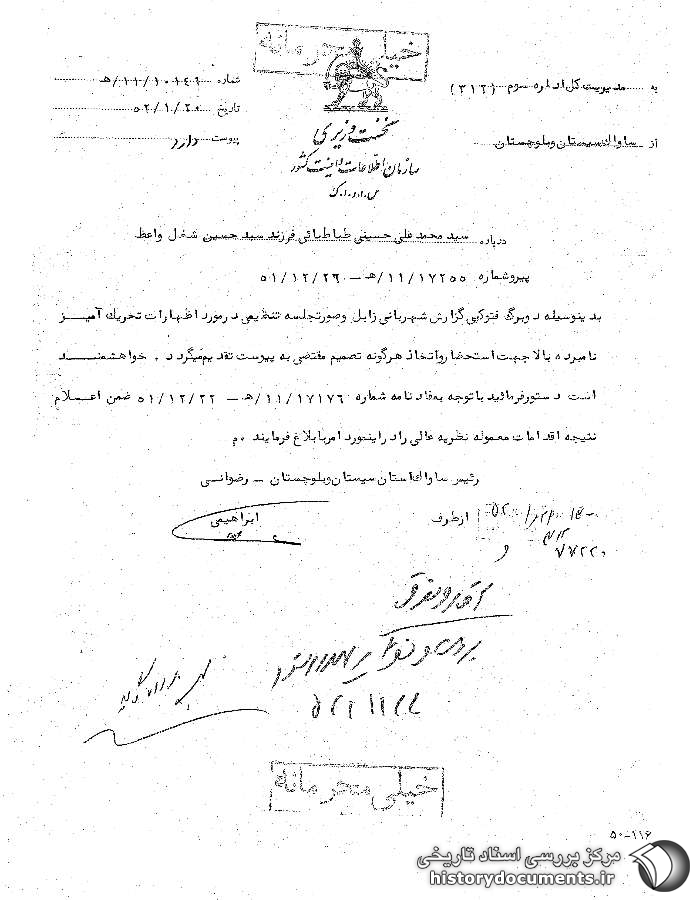 خیلی محرمانه
به مدیریت کل اداره سوم (۳۱۲)
شماره ۱۰۱۴۶/۱۱/هـ
تاریخ ۵۲/۱/۲۰
از ساواک سیستان و بلوچستان
پیوست دارد
نخست وزیری
سازمان اطلاعات و امنیت کشور
س.ا.و.ا.ک
درباره سید محمد علی حسینی طباطبائی فرزند سید حسین شغل واعظ
پیرو شماره ۱۷۲۵۵/۱۱/هـ – ۵۱/۱۲/۲۶
بدینوسیله دوبرگ فتوکپی گزارش شهربانی زابل وصورتجلسه تنظیمی درمورد اظهارات تحریك آمیز
نامبرده بالا جهت استحضار واتخاذ هرگونه تصمیم مقتضی به پیوست تقدیم میگردد . خواهشمند
است دستورفرمائید باتوجه بمفاد نامه شماره ۱۷۱۷۶/۱۱/هـ – ۵۱/۱۲/۲۲ ضمن اعلام
نتیجه اقدامات معموله نظریه عالی را دراینمورد امربابلاغ فرمایند .م
رئیس ساواك استان سیستان وبلوچستان – رضوانی
ازطرف
ابراهیمی
خیلی محرمانه
۵۰-۱۱۶
مرکز بررسی اسناد تاریخی
historydocuments.ir